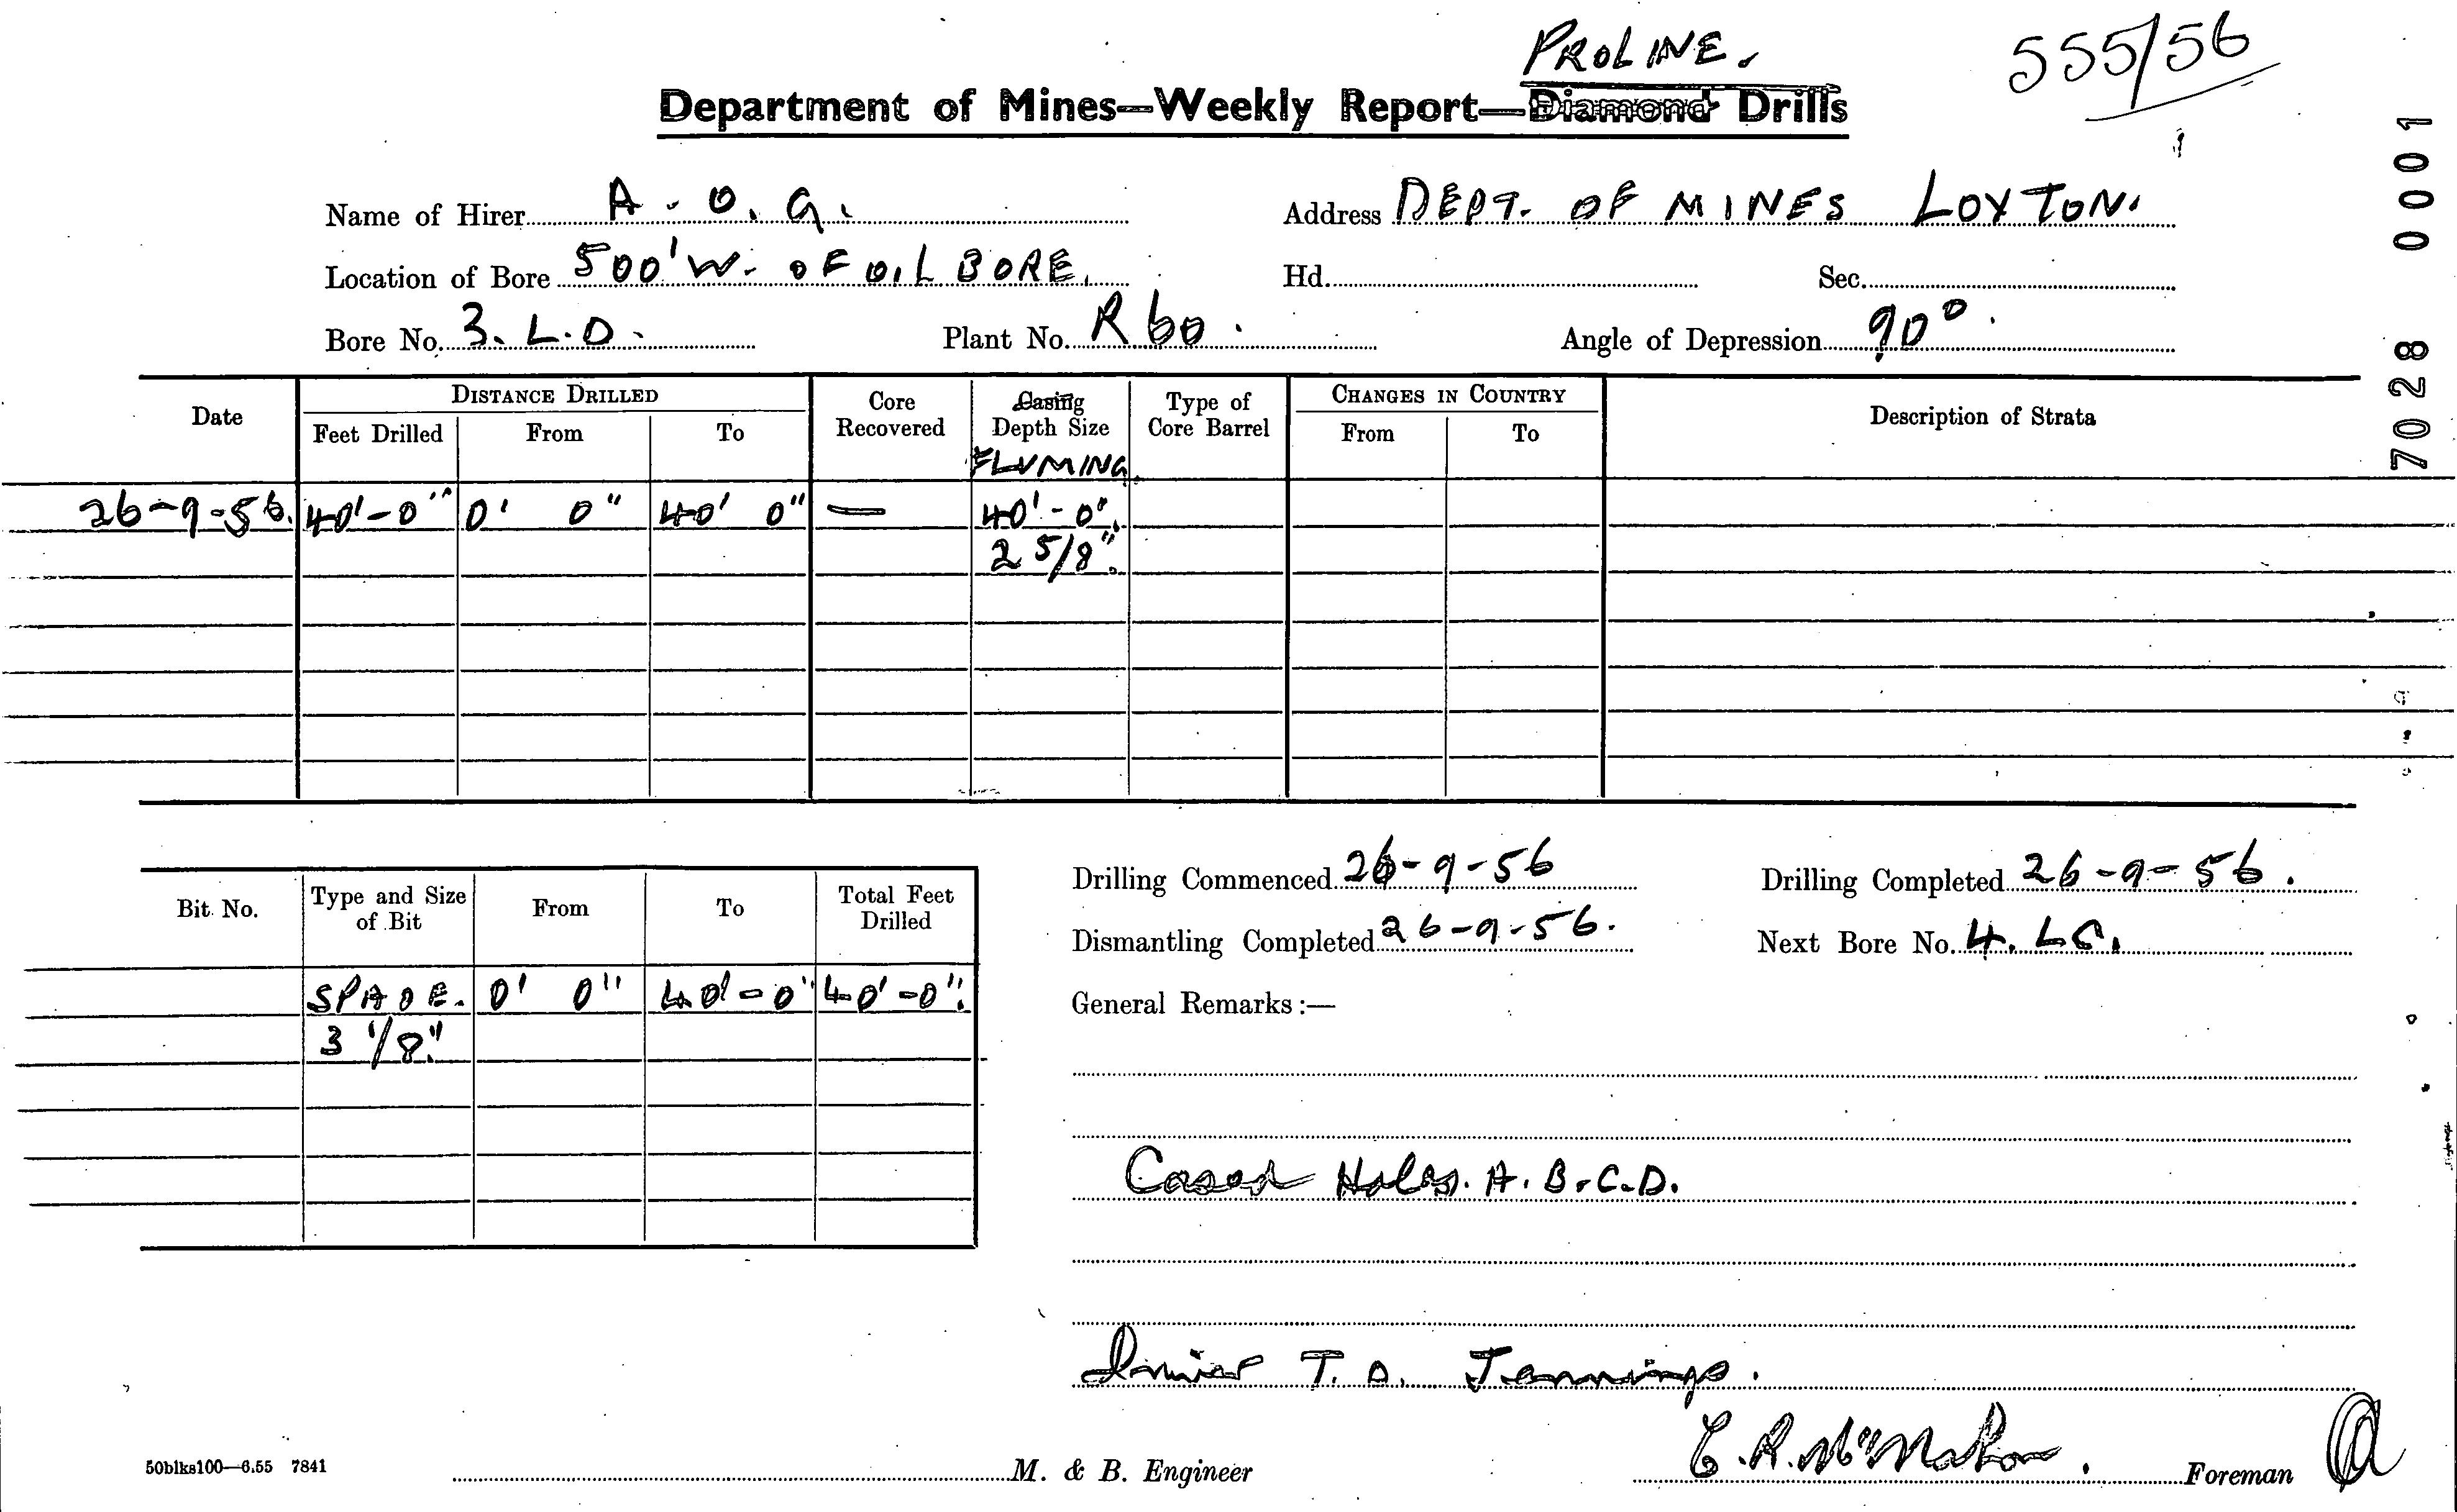 PROLINE.
555/56
Department of Mines—Weekly Report—Diamond Drills
Name of Hirer A. O. G. Address DEPT. OF MINES LOXTON.
Location of Bore 500' W. OF OIL BORE. Hd. Sec.
Bore No. 3. L.D. Plant No. R 60. Angle of Depression 90°.
7028 0001
Date DISTANCE DRILLED Core Recovered Casing Depth Size Type of Core Barrel CHANGES IN COUNTRY Description of Strata
Feet Drilled From To From To
FLUMING
26-9-56. 40'-0" 0' 0" 40' 0" — 40'-0".
2 5/8".
Drilling Commenced 26-9-56 Drilling Completed 26-9-56.
Bit No. Type and Size of Bit From To Total Feet Drilled
Dismantling Completed 26-9-56. Next Bore No. 4. LC.
SPADE. 0' 0" 40'-0" 40'-0".
3 1/8"
General Remarks:—
Cased Holes. A. B. C. D.
Driver T. D. Jennings.
C. R. McMahon. Foreman
M. & B. Engineer
50blks100—6.55 7841